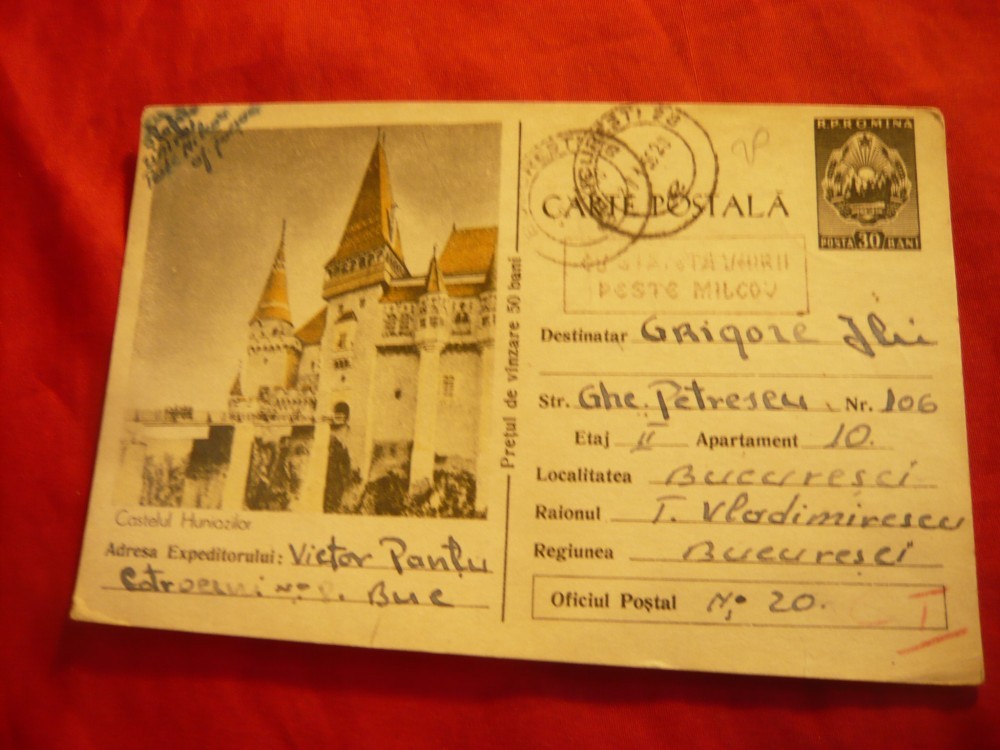 Castelul Huniazilor
Adresa Expeditorului: Victor Panțu
Buc
Prețul de vînzare 50 bani
R.P.ROMINA
POSTA 30 BANI
CARTE POȘTALĂ
PESTE MILCOV
Destinatar Grigore Ilie
Str. Ghe. Petrescu Nr. 106
Etaj II Apartament 10.
Localitatea București
Raionul T. Vladimirescu
Regiunea București
Oficiul Poștal No 20.